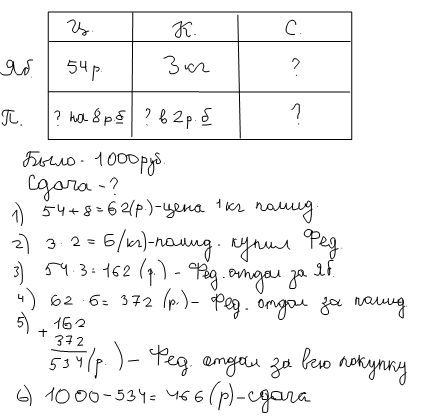 Ц. К. С.
Яб. 54р. 3кг ?
П. ? на 8р б ? в 2р. б ?
Было - 1000руб.
Сдача - ?
1) 54+8=62(р.)-цена 1кг помид.
2) 3·2=6(кг)-помид. купил Фед.
3) 54·3=162(р.) - Фед. отдал за яб.
4) 62·6=372(р.) - Фед. отдал за помид.
5) + 162
372
534(р.) - Фед. отдал за всю покупку
6) 1000-534=466(р)-сдача